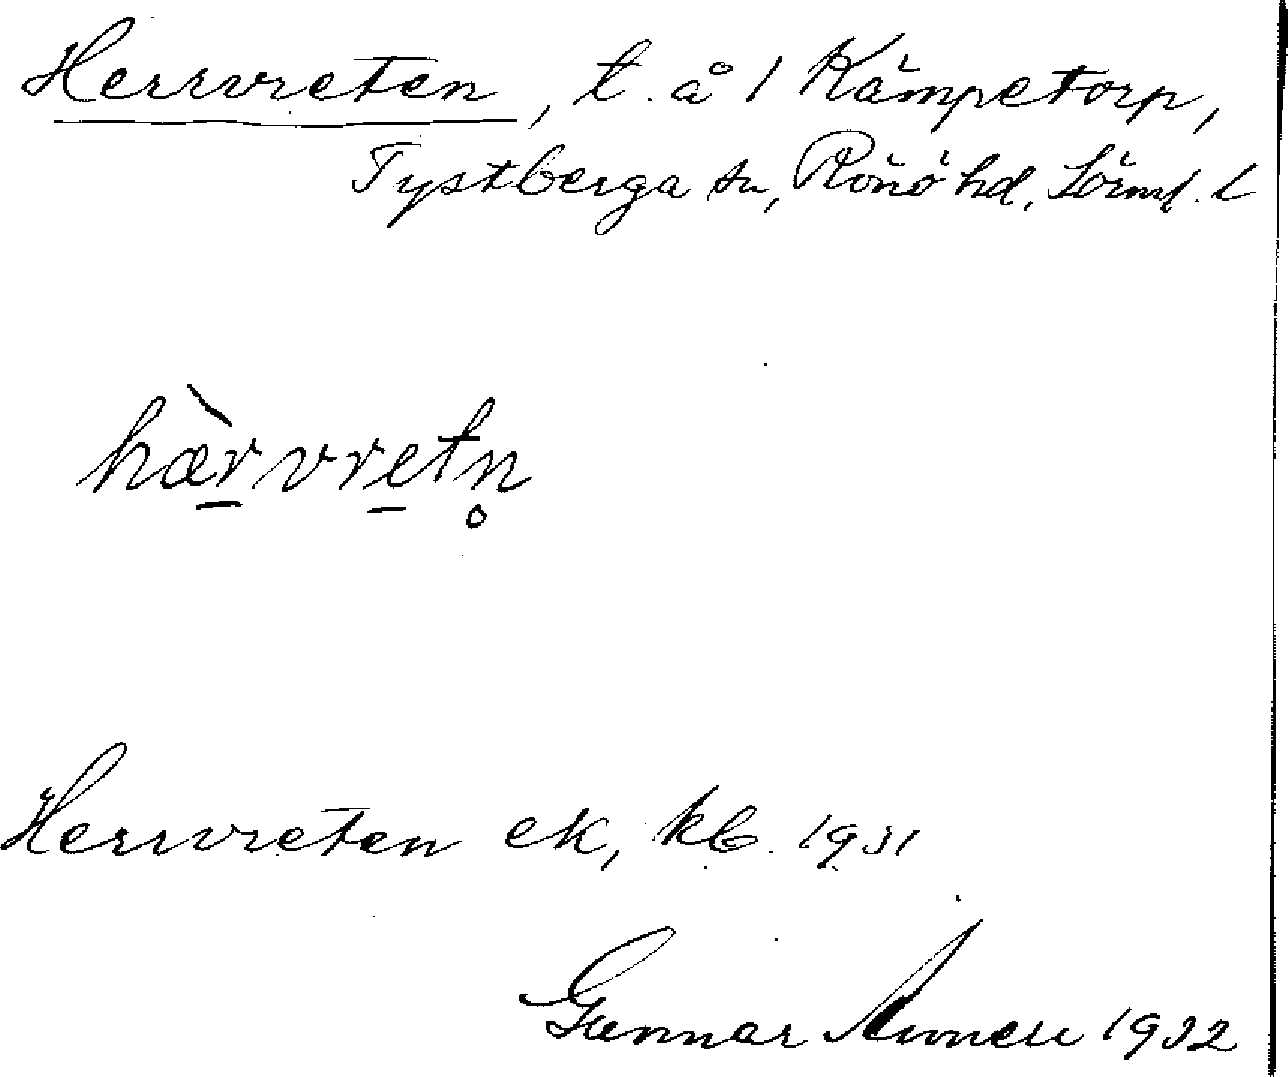 Herrvreten, t. å 1 Kämpetorp,
Tystberga sn, Rönö hd, Sörml. l
hæ̀r̲vre̲tn̥
Herrvreten ek, kb. 1931
Gunnar 1932